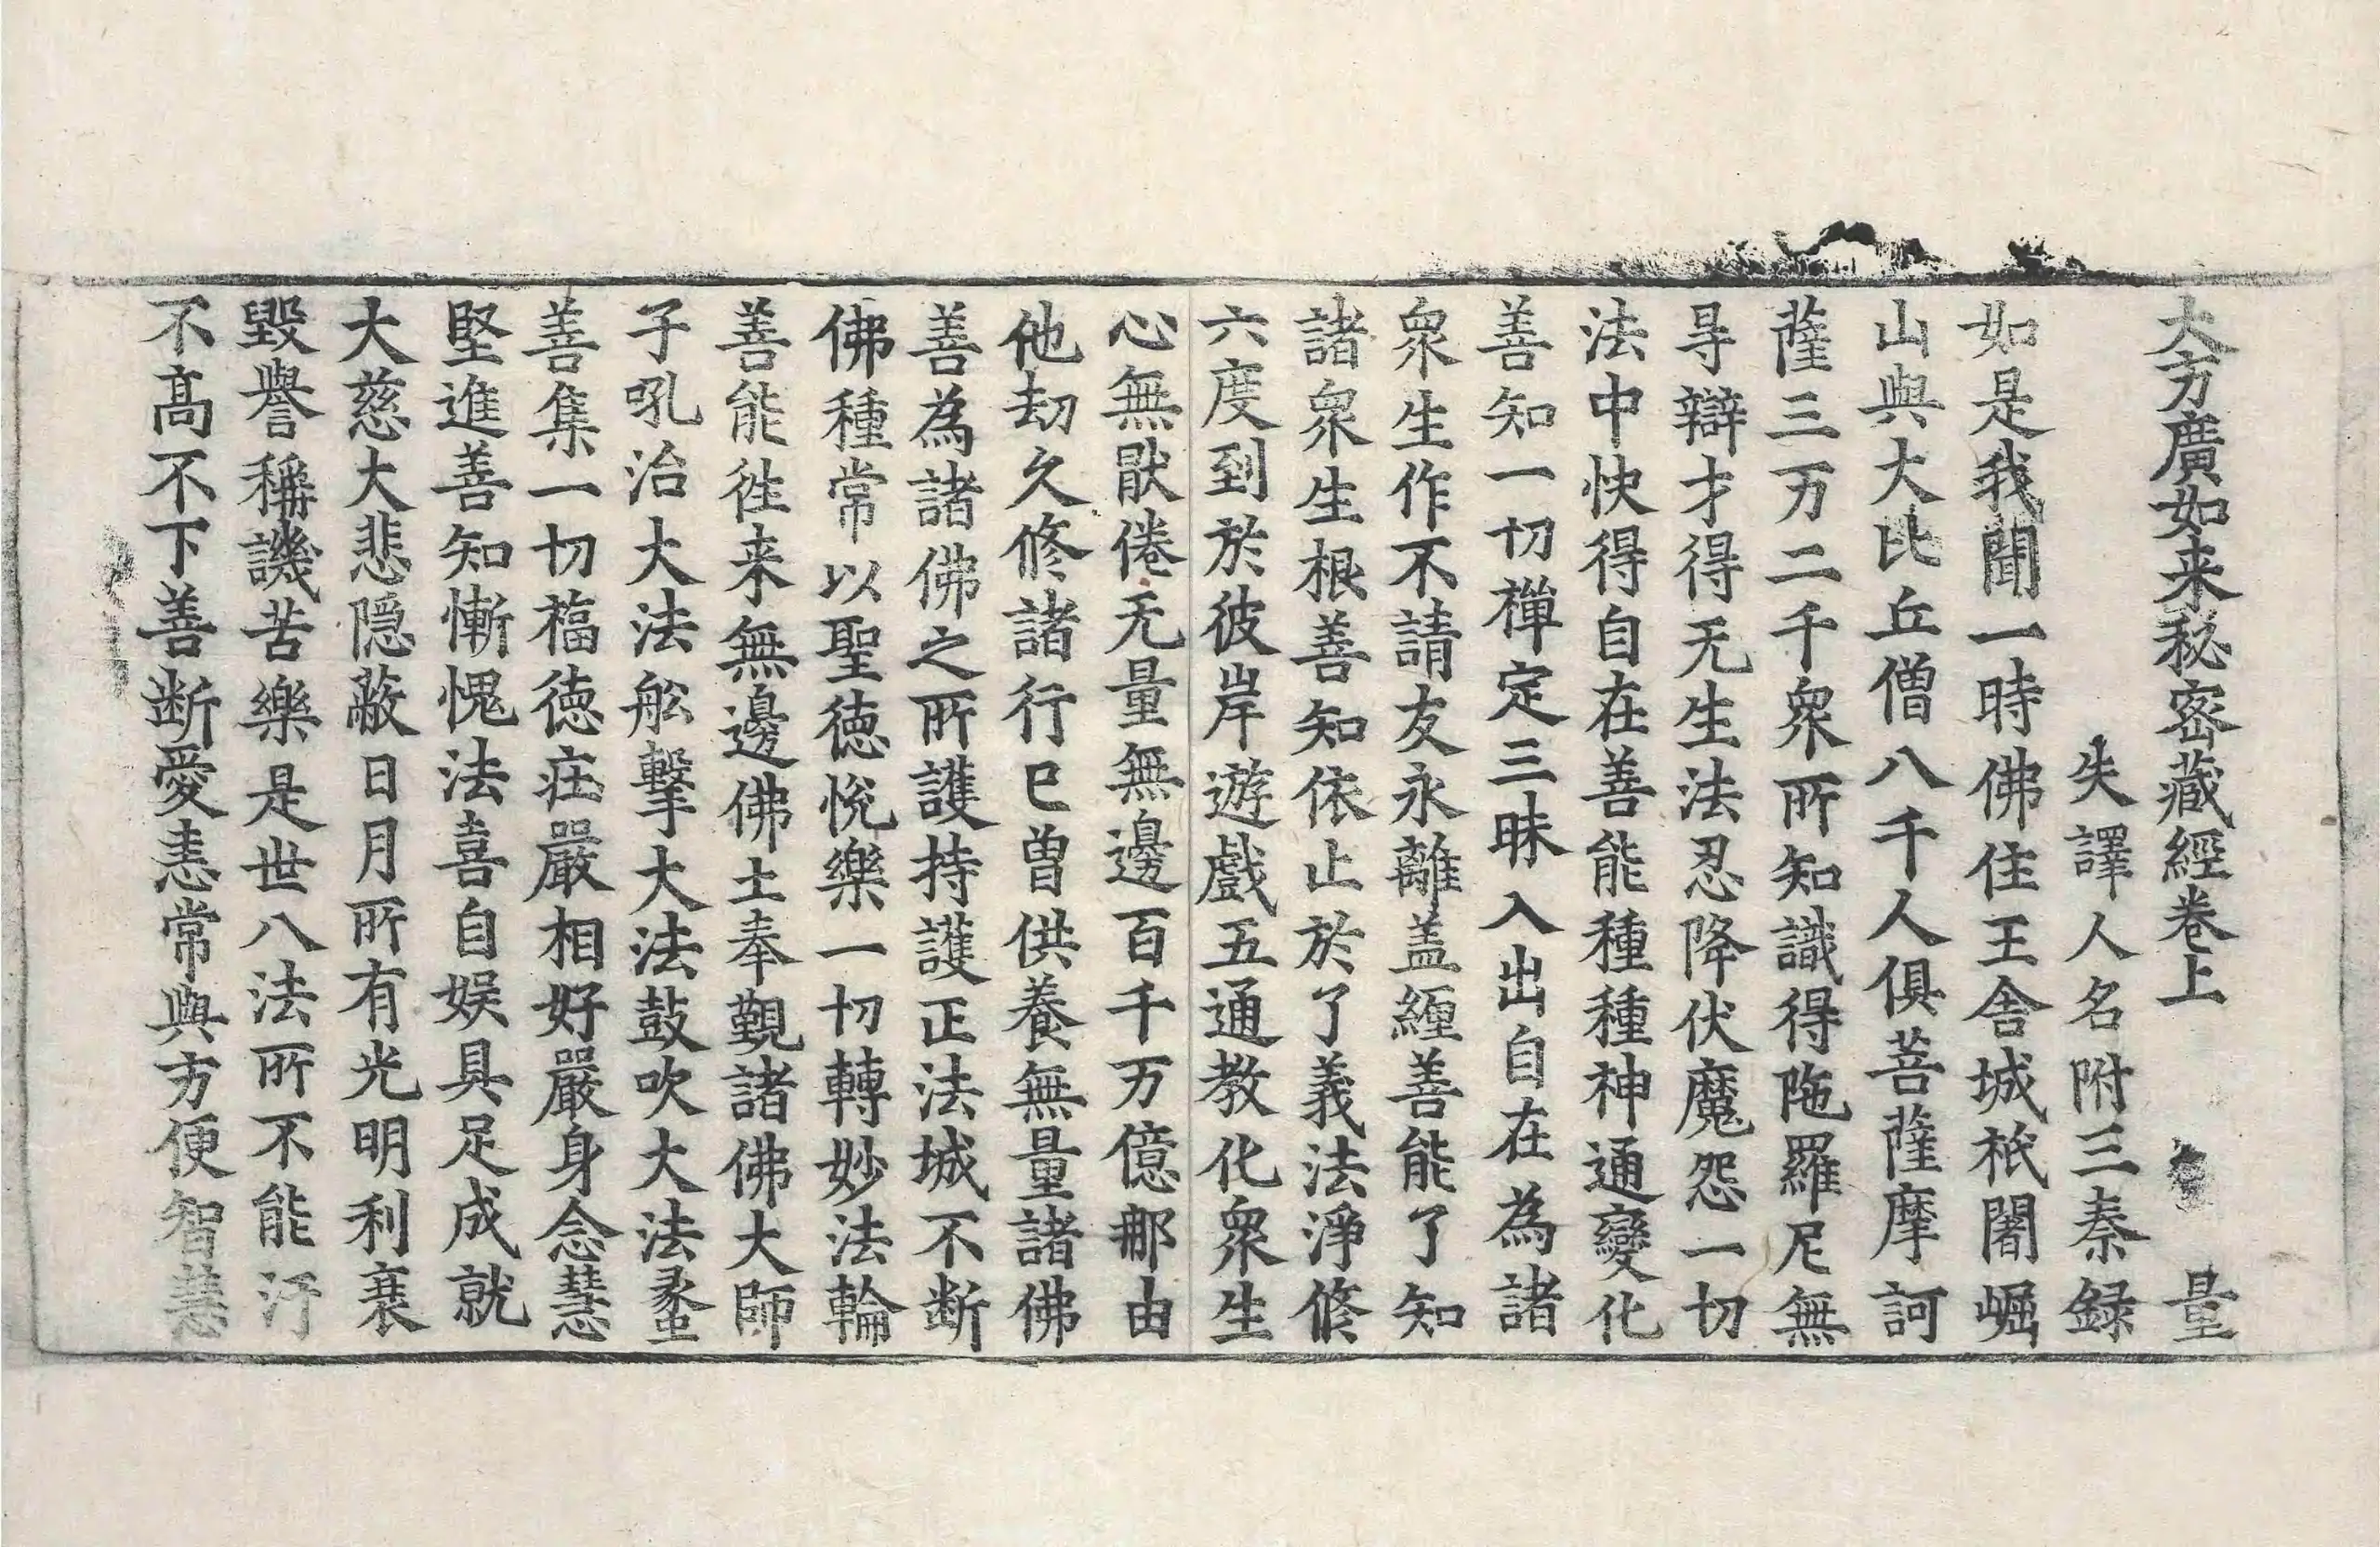 大方廣如来秘宻藏經卷上 量
失譯人名附三秦録
如是我聞一時佛住王舎城祇闍崛
山與大比丘僧八千人俱菩薩摩訶
薩三万二千衆所知識得陁羅尼無
㝵辯才得无生法忍降伏魔怨一切
法中快得自在善能種種神通變化
善知一切禪定三昧入出自在為諸
衆生作不請友永離盖纏善能了知
諸衆生根善知依止於了義法淨修
六度到於彼岸遊戲五通教化衆生
心無猒倦无量無邊百千万億那由
他劫久修諸行已曾供養無量諸佛
善為諸佛之所護持護正法城不断
佛種常以聖徳悅樂一切轉妙法輪
善能徃来無邊佛土奉覲諸佛大師
子吼治大法舩擊大法鼓吹大法䗍
善集一切福徳莊嚴相好嚴身念慧
堅進善知慚愧法喜自娱具足成就
大慈大悲隠蔽日月所有光明利衰
毀譽稱譏苦樂是世八法所不能汙
不髙不下善断愛恚常與方便智慧